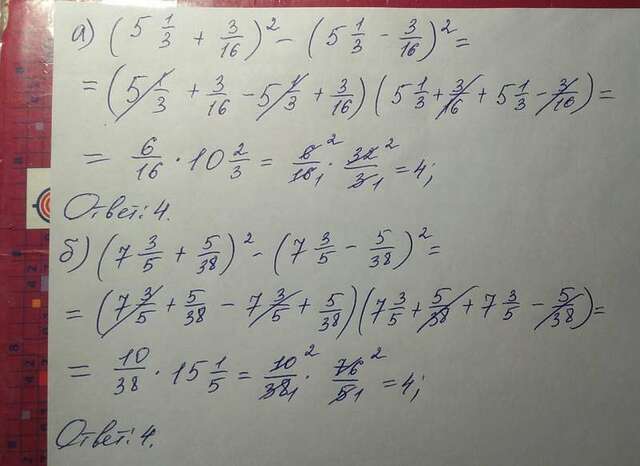 а) (5 1/3 + 3/16)² - (5 1/3 - 3/16)² =
= (5 1/3 + 3/16 - 5 1/3 + 3/16)(5 1/3 + 3/16 + 5 1/3 - 3/16) =
= 6/16 · 10 2/3 = 6/16 1 2 · 32/3 1 2 = 4;
Ответ: 4.
б) (7 3/5 + 5/38)² - (7 3/5 - 5/38)² =
= (7 3/5 + 5/38 - 7 3/5 + 5/38)(7 3/5 + 5/38 + 7 3/5 - 5/38) =
= 10/38 · 15 1/5 = 10/38 1 2 · 76/5 1 2 = 4;
Ответ: 4.